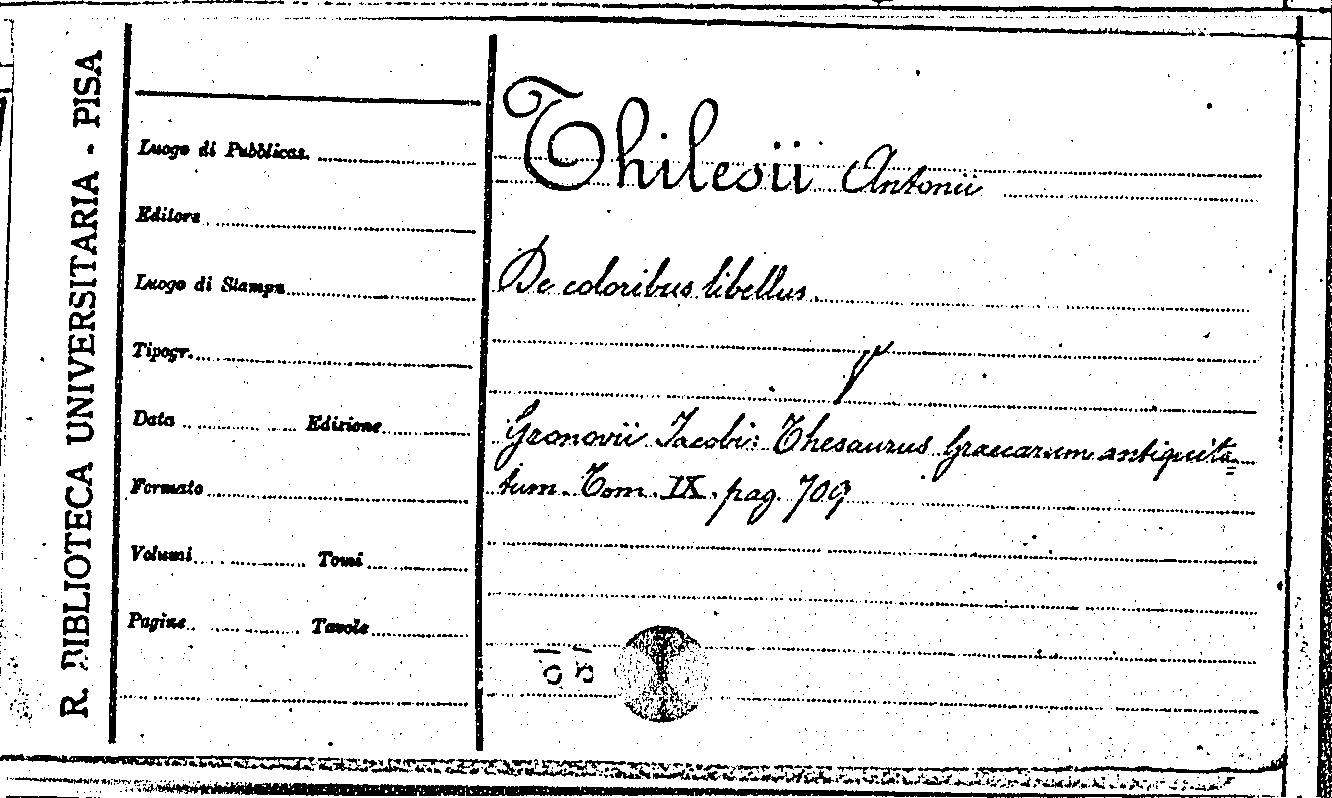 R. BIBLIOTECA UNIVERSITARIA - PISA
Luogo di Pubblicas.
Editore
Luogo di Stampa
Tipogr.
Data Edizione
Formato
Volumi Tomi
Pagine Tavole
Thilesii Antonii
De coloribus libellus.
Gronovii Jacobi: Thesaurus Graecarum antiquita=
tum. Tom. IX. pag. 709